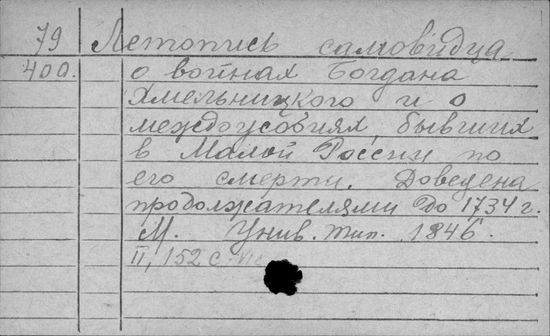 79 Летопись самовидца
400. о войнах Богдана
Хмельницкого и о
междоусобиях, бывших
в Малой России по
его смерти. Доведена
продолжателями до 1734 г.
М. Унив. тип. 1846.
II, 152 с.